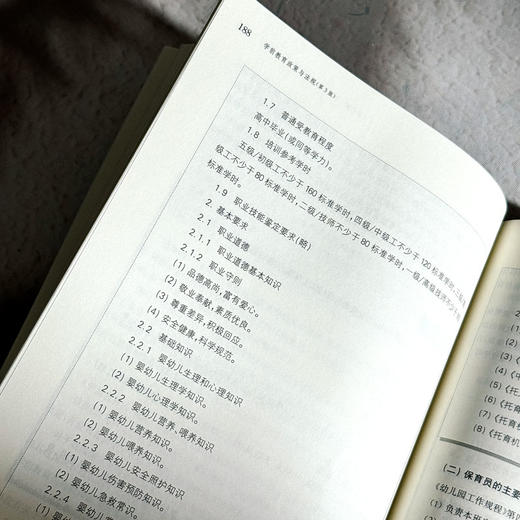 188
学前教育政策与法规(第3版)
1.7 普通受教育程度
高中毕业(或同等学力)。
1.8 培训参考学时
五级/初级工不少于 160 标准学时,四级/中级工不少于 120 标准学时,三级/高
级工不少于 80 标准学时,二级/技师不少于 80 标准学时,一级/高级技师不少于
标准学时。
1.9 职业技能鉴定要求(略)
2. 基本要求
2.1 职业道德
2.1.1 职业道德基本知识
2.1.2 职业守则
(1) 品德高尚,富有爱心。
(2) 敬业奉献,素质优良。
(3) 尊重差异,积极回应。
(4) 安全健康,科学规范。
2.2 基础知识
2.2.1 婴幼儿生理和心理知识
(1) 婴幼儿生理学知识。
(2) 婴幼儿心理学知识。
2.2.2 婴幼儿营养-喂养知识
(1) 婴幼儿营养知识。
(2) 婴幼儿喂养知识。
2.2.3 婴幼儿安全照护知识
(1) 婴幼儿伤害预防知识。
(2) 婴幼儿急救常识。
2.2.4 婴幼
(1) 婴幼儿
(3)
(4) 《中
(5) 《托
(6) 《托育
(7) 《托育机
(8) 《托育机
(二) 保育员的主要
《幼儿园工作规程》第四
(1) 负责本班